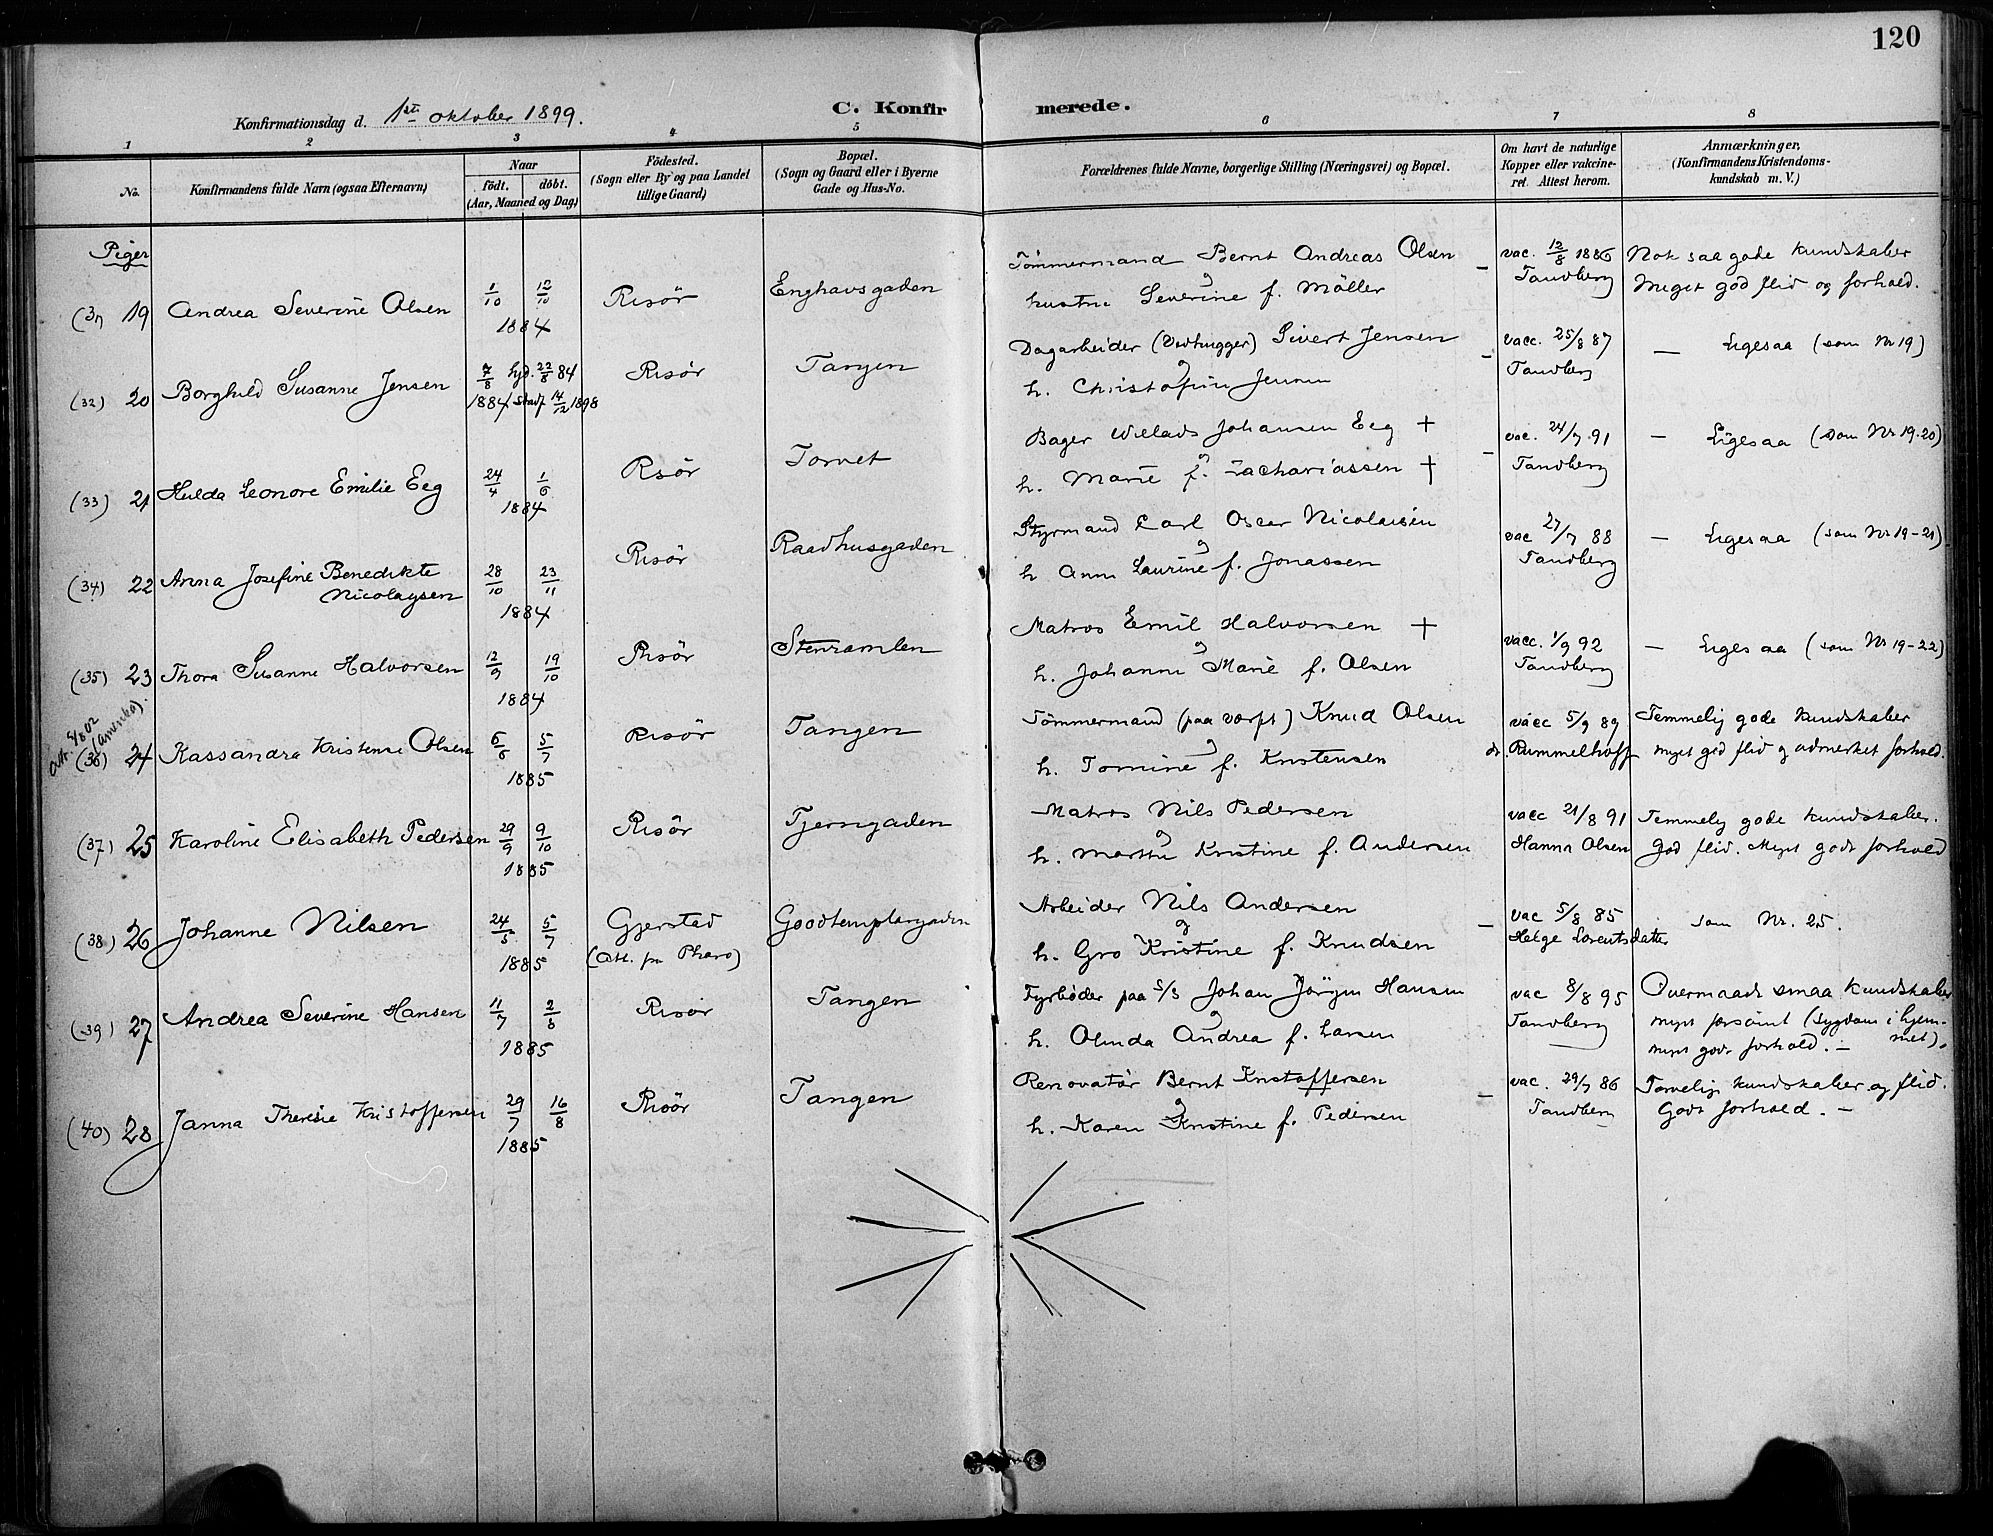 120
Konfirmationsdag d. 1ste oktober 1899.
C. Konfirmerede.
1 2 3 4 5 6 7 8
No.
Konfirmandens fulde Navn (ogsaa Efternavn)
Naar
födt. döbt.
(Aar, Maaned og Dag)
Födested.
(Sogn eller By og paa Landet
tillige Gaard)
Bopæl.
(Sogn og Gaard eller i Byerne
Gade og Hus-No.
Forældrenes fulde Navne, borgerlige Stilling (Næringsvei) og Bopæl.
Om havt de naturlige
Kopper eller vakcine-
ret. Attest herom.
Anmærkninger,
(Konfirmandens Kristendoms-
kundskab m. V.)
Piger
(31) 19 Andrea Severine Olsen 1/10 12/10 1884 Risör Enghavsgaden
Tömmermand Bernt Andreas Olsen
og
hustru Severine f. Möller
vac. 12/8 1886
Tandberg
Nok saa gode kundskaber
Meget god flid og forhold.
(32) 20 Borghild Susanne Jensen 7/8 1884 hjd. 22/8 84 stadf 14/12 1898 Risör Tangen
Dagarbeider (Vedhugger) Sivert Jensen
og
h. Christofine Jensen
vacc. 25/8 87
Tandberg
— Ligesaa (som Nr 19)
(33) 21 Hulda Leonore Emilie Eeg 24/4 1/6 1884 Risör Torvet
Bager Willads Johansen Eeg +
og
h. Marie f. Zachariassen +
vac. 24/7 91
Tandberg
— Ligesaa (som Nr 19-20)
(34) 22 Anna Josefine Benedikte
Nicolaysen 28/10 23/11 1884 Risör Raadhusgaden
Styrmand Carl Oscar Nicolaisen
og
h Anne Laurine f. Jonassen
vac 27/7 88
Tandberg
— Ligesaa (som Nr 19-21)
(35) 23 Thora Susanne Halvorsen 12/9 19/10 1884 Risör Stenramlen
Matros Emil Halvorsen +
og
h. Johanne Marie f. Olsen
vacc. 1/9 92
Tandberg
— Ligesaa (som Nr 19-22)
att. 5/8 02
(amerika).
(36) 24 Kassandra Kristense Olsen 6/6 5/7 1885 Risör Tangen
Tömmermand (paa værft) Knud Olsen
og
h. Tomine f. Kristensen
vacc 5/9 89
dr. Rummelhoff
Temmelig gode kundskaber
meget god flid og udmerket forhold.
(37) 25 Karoline Elisabeth Pedersen 29/9 9/10 1885 Risör Tjerngaden
Matros Nils Pedersen
og
h. Marthe Kristine f. Andersen
vacc 21/8 91
Hanna Olsen
Temmelig gode kundskaber.
God flid. Meget godt forhold
(38) 26 Johanne Nilsen 24/5 5/7 1885 Gjerstad
(att. fra Pharo) Goodtemplargaden
Arbeider Nils Andersen
og
h. Gro Kristine f. Knudsen
vac 5/8 85
Helge Lorentsdatter
som Nr. 25.
(39) 27 Andrea Severine Hansen 11/7 2/8 1885 Risör Tangen
Fyrböder paa S/S Johan Jörgen Hansen
og
h. Olinda Andrea f. Larsen
vac 8/8 95
Tandberg
Overmaade smaa kundskaber
meget forsömt (sygdom i hjem-
met).
meget godt forhold. —
(40) 28 Janna Theresie Kristoffersen 29/7 16/8 1885 Risör Tangen
Renovatör Bernt Kristoffersen
og
h. Karen Kristine f. Pedersen
vac. 29/7 86
Tandberg
Tarvelige kundskaber og flid.
Godt forhold. —